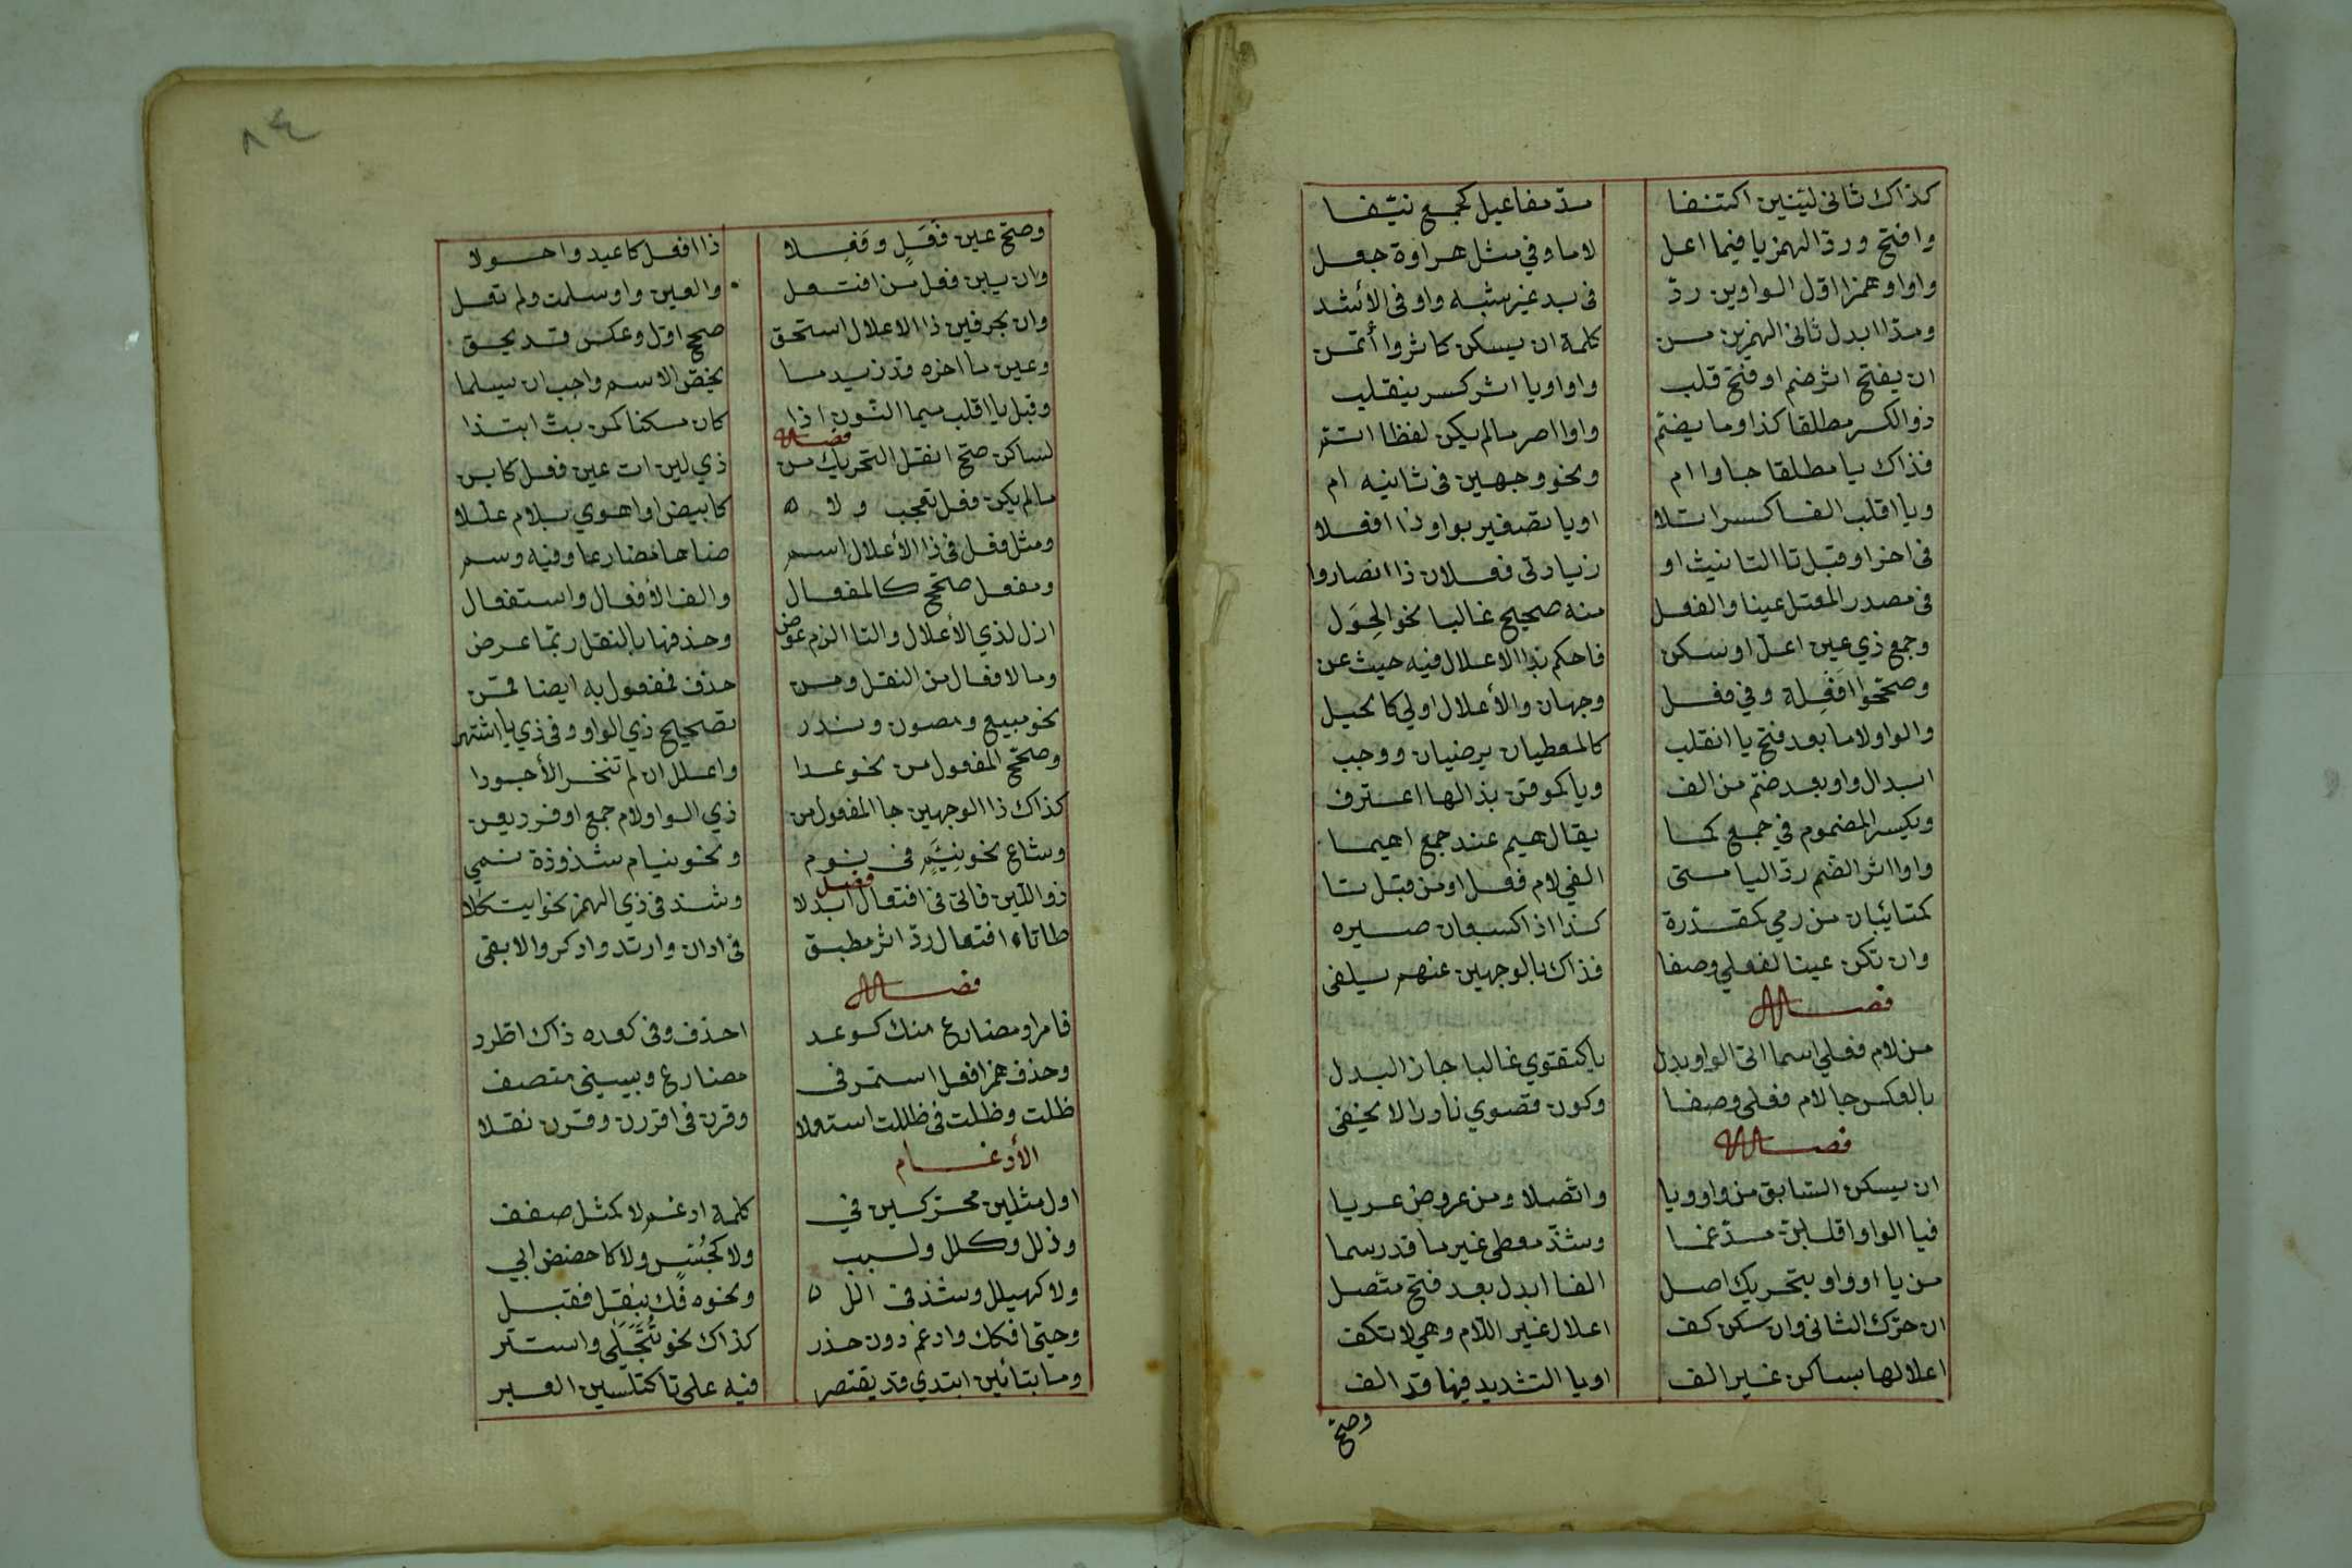 كذاك ثانى لينين اكتنفا مدّ مفاعيل كجمع نيّفا
وافتح وردّ الهمز يا فيما اعل لاما وفي مثل هراوة جعل
واوا وهمزا اوّل الواوين ردّ فى بدء غير شبه ووفى الأشد
ومدّا ابدل ثانى الهمزين من كلمة ان يسكن كاثر وأتمن
ان يفتح اثر ضم او فتح قلب واوا ويا اثر كسر ينقلب
ذو الكسر مطلقا كذا وما يضمّ واوا اصر مالم يكن لفظا اتم
فذاك يا مطلقا جا واام ونحو وجهين فى ثانيه ام
ويا اقلب الفا كسرا تلا او يا تصغير بواو ذا افعلا
فى اخر او قبل تا التانيث او زيادتى فعلان ذا ايضا راوا
فى مصدر المعتل عينا والفعل منه صحيح غالبا نحو الحِوَل
وجمع ذي عين اعلّ او سكن فاحكم بذا الاعلال فيه حيث عن
وصححوا افَعِلة وفي فعل وجهان والأعلال اولي كالحيل
والواو لاما بعد فتح يا انقلب كالمعطيان يرضيان ووجب
ابدال واو بعد ضم من الف ويا كموقن بذا لها اعترف
ويكسر المضموم في جمع كما يقال هيم عند جمع اهيما
واوا اثر الضم ردّ اليا متى الفي لام فعل او من قبل تا
كتا يبان من رمي كمقدرة كذا اذا كسبعان صيره
وان تكن عينا لفعلي وصفا فذاك بالوجهين عنهم يلفى
فصل
من لام فعلي اسما اتى الواو بدل يا كتقوي غالبا جاز البدل
بالعكس جا لام فعلى وصفا وكون قصوي نادرا لا يخفى
فصل
ان يسكن السّابق من واو ويا واتّصلا ومن عروض عريا
فيا الواو اقلبن مدّغما وشذّ معطى غير ما قد رسما
من يا او واو بتحريك اصل الفا ابدل بعد فتح متّصل
ان حرّك الثانى وان سكن كف اعلال غير اللام وهي لا تكف
اعلالها بساكن غير الف او يا التشديد فيها قد الف
وصحّ
٨٤
وصحّ عين فَعَلٍ وفَعِلا ذا افعل كاغيد واحولا
وان يبن فعل من افتعل والعين واو سلمت ولم تعل
وان بحرفين ذا الاعلال استحق صحح اوّل وعكس قد يحق
وعين ما اخره قد زيد ما يخصّ الاسم واجب ان يسلما
وقبل يا اقلب ميما النّون اذا كان مسكنا كمن بتّ ابتذا
فصل
لساكن صحّ انقل التحريك من ذي لين ات عين فعل كابن
مالم يكن فعل تعجب ولا كابيض او اهوي بلام علّلا
ومثل فعل فى ذا الأعلال اسم ضاها مضارعا وفيه وسم
ومفعل صحّح كالمفعال والف الأفعال واستفعال
ازل لذي الأعلال والتا الزم عوض وحذفها بالنقل ربّما عرض
وما لافعال من النقل ومن حذف فمفعول به ايضا قمن
نحو مبيع ومصون وندر تصحيح ذي الواو وفى ذي يا اشتهر
وصحّح المفعول من نحو عدا واعلل ان لم تنخر الأجودا
كذاك ذا الوجهين جا المفعول من ذي الواو لام جمع او فرد يعن
وشاع نحو نيّم في نوم ونحو نيام شذوذة نمي
فصل
ذو اللّين فا تى فى افتعال ابدلا وشذ فى ذي الهمز نحو ايتكلا
طا تاء افتعال ردّ اثر مطبق فى ادان وارتد وادكر والا بقى
فصل
فا مر او مضارع منك كوعد احذف وفى كعده ذاك اطّرد
وحذف همز افعل استمر فى مضارع وبييتى متصف
ظلت وظلت فى ظللت استعملا وقرن فى اقررن وقرن نقلا
الأدغام
اول مثلين محرّكين في كلمة ادغم لا كمثل صفف
وذلل وكلل ولبب ولا كجُسّسٍ ولا كاخصص ابي
ولا كهيلل وشذ فى الل ونحوه فَكّ بنقل فقبل
وحيى افكك وادغم دون حذر كذاك نحو تُتَجَلَّى واستتر
وما بتائين ابتدي قد يقتصر فيه على تا كتبين العبر